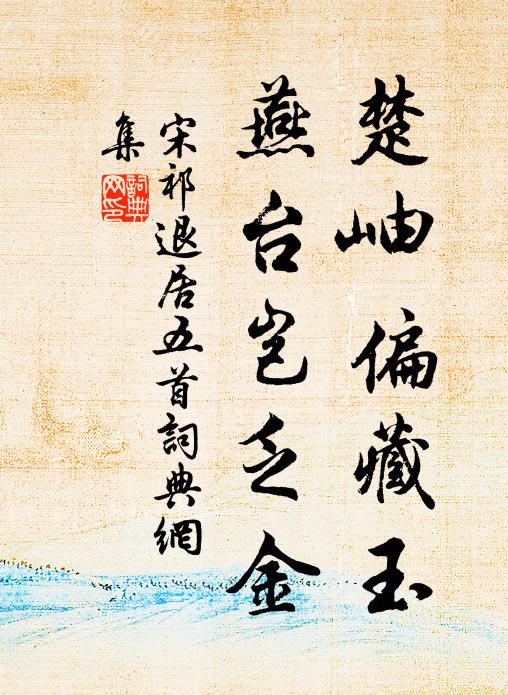 楚岫偏藏玉
燕台岂乏金
宋祁退居五首詞典網
集
詞典
网印